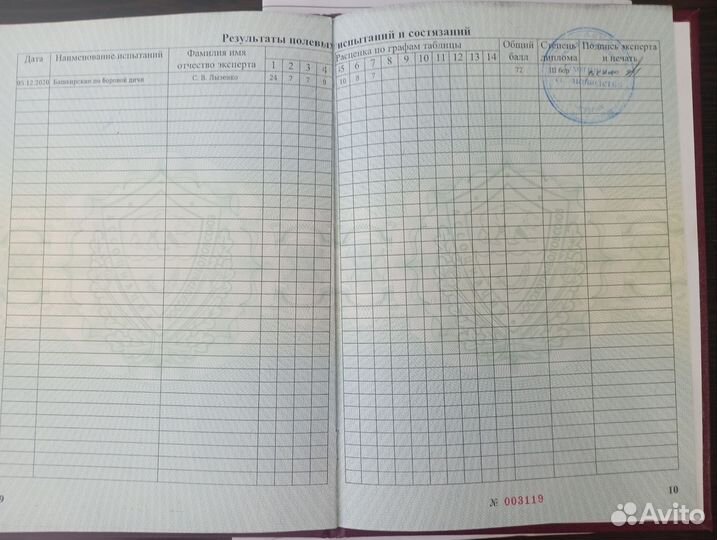 Результаты полевых испытаний и состязаний
Дата Наименование испытаний Фамилия имя отчество эксперта Расценка по графам таблицы Общий балл Степень диплома Подпись эксперта и печать
1 2 3 4 5 6 7 8 9 10 11 12 13 14
05.12.2020 Башкирские по боровой дичи С. В. Лызенко 24 7 7 9 10 8 7 72 III бор
9
№ 003119
10
Avito